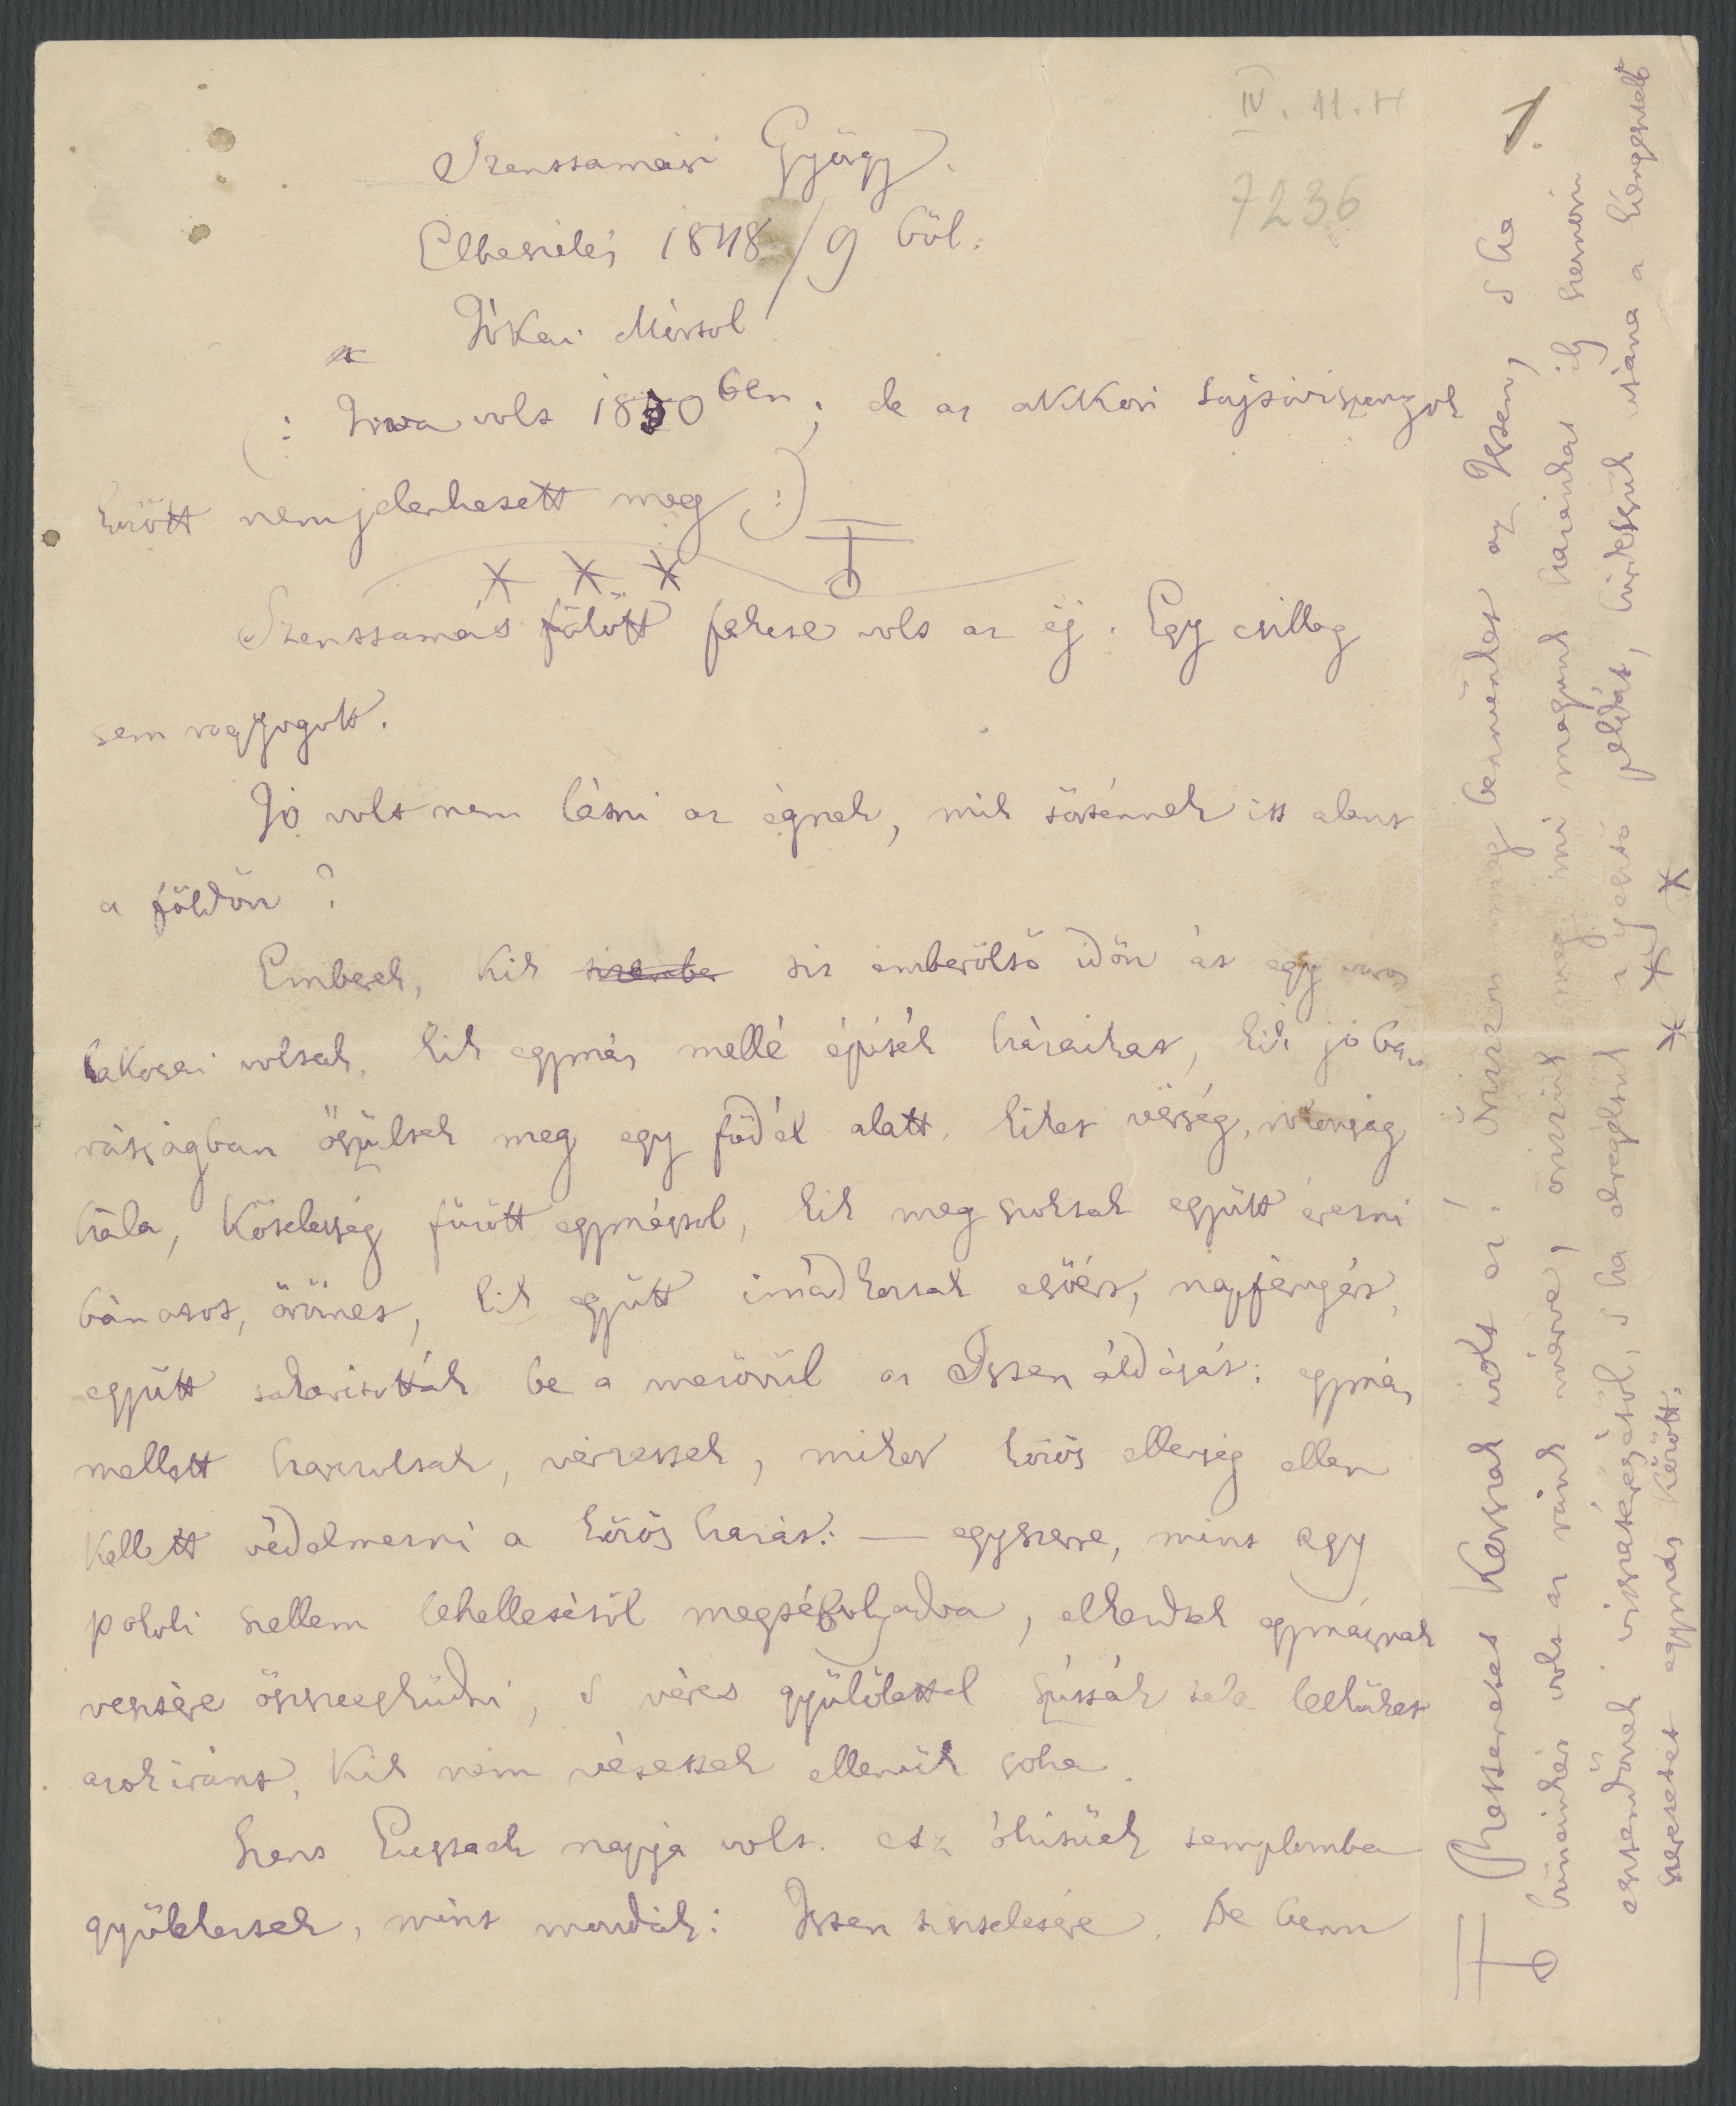 IV. 11. H
1.
7236
Szenttamási György.
Elbeszélés 1848/9 ből.
Jókai Mórtol
(: Irva volt 1850ben; de az akkori sajtóviszonyok
között nem jelenhetett meg :)
* * *
Szenttamás fölött fekete volt az éj. Egy csillag
sem ragyogott.
Jó volt nem látni az égnek, mik történnek itt alant
a földön?
Emberek, kik tíz emberöltő időn át egy város
lakosai voltak, kik egymás mellé épiték házaikat, kik jó ba-
rátságban őszültek meg egy födél alatt, kiket vérség, rokonság
hála, kötelesség fűzött egymástol, kik megszoktak együtt érezni
bánatot, örömet, kik együtt imádkoztak esőért, napfényért,
együtt takaritották be a mezőrül az Isten áldását: egymás
mellett harczoltak, véreztek, mikor közös ellenség ellen
kellett védelmezni a közös hazát: — egyszerre, mint egy
pokoli szellem lehelletétől megtébolyodva, elkezdtek egymásnak
vesztére összeesküdni, s véres gyűlölettel szítták tele lelköket
azok iránt, kik nem vétettek ellenük soha.
Szent Eustach napja volt. Az óhitűek templomba
gyülekeztek, mint mondák: Isten tiszteletére. De benn
Rettenetes korszak volt az! Őrizzen meg bennünket az Isten, s ha
bűneinkért volt az ránk mérve, őrizzük meg mi magunk hazánkat ily szörnyű
esztendőnek visszatérésétől, s ha elregéljük a ijesztő példát, hirdessük utána a kiengesztelő
szeretetet egymás között.
* * *